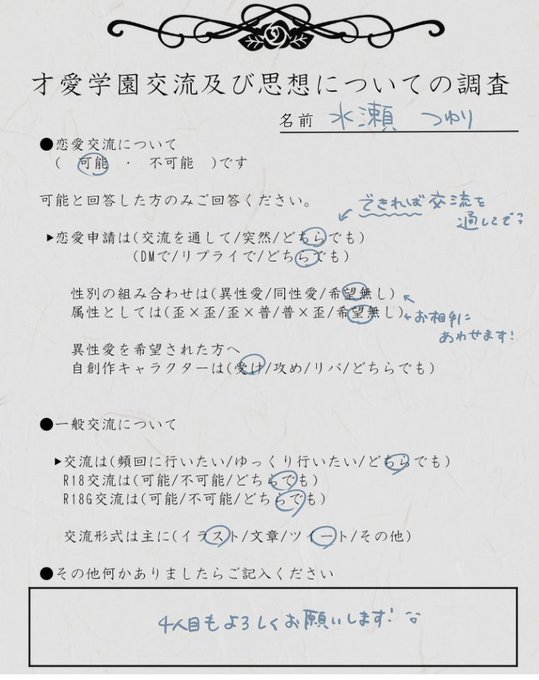 才愛学園交流及び思想についての調査
名前 水瀬 つわり
●恋愛交流について
( 可能 ・ 不可能 )です
可能と回答した方のみご回答ください。
できれば交流を
通してで
▶恋愛申請は(交流を通して/突然/どちらでも)
(DMで/リプライで/どちらでも)
性別の組み合わせは(異性愛/同性愛/希望無し)
属性としては(歪×歪/歪×普/普×歪/希望無し)
お相手に
あわせます!
異性愛を希望された方へ
自創作キャラクターは(受け/攻め/リバ/どちらでも)
●一般交流について
▶交流は(頻回に行いたい/ゆっくり行いたい/どちらでも)
R18交流は(可能/不可能/どちらでも)
R18G交流は(可能/不可能/どちらでも)
交流形式は主に(イラスト/文章/ツイート/その他)
●その他何かありましたらご記入ください
4人目もよろしくお願いします!